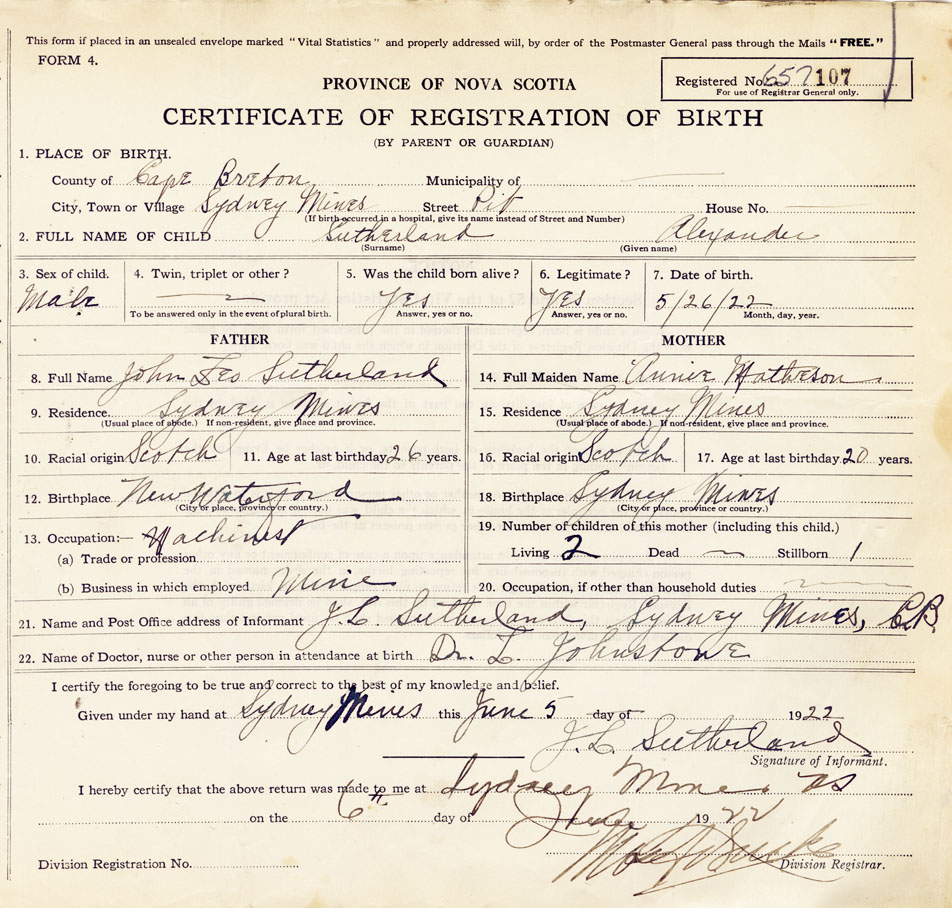 This form if placed in an unsealed envelope marked "Vital Statistics" and properly addressed will, by order of the Postmaster General pass through the Mails "FREE."
FORM 4.
Registered No. 657107
For use of Registrar General only.
PROVINCE OF NOVA SCOTIA
CERTIFICATE OF REGISTRATION OF BIRTH
(BY PARENT OR GUARDIAN)
1. PLACE OF BIRTH.
County of Cape Breton Municipality of
City, Town or Village Sydney Mines Street Pit House No.
(If birth occurred in a hospital, give its name instead of Street and Number)
2. FULL NAME OF CHILD Sutherland Alexander
(Surname) (Given name)
3. Sex of child. 4. Twin, triplet or other? 5. Was the child born alive? 6. Legitimate? 7. Date of birth.
Male yes yes 5/26/22
To be answered only in the event of plural birth. Answer, yes or no. Answer, yes or no. Month, day, year.
FATHER MOTHER
8. Full Name John Leo Sutherland 14. Full Maiden Name Annie Matheson
9. Residence Sydney Mines 15. Residence Sydney Mines
(Usual place of abode.) If non-resident, give place and province. (Usual place of abode.) If non-resident, give place and province.
10. Racial origin Scotch 11. Age at last birthday 26 years. 16. Racial origin Scotch 17. Age at last birthday 20 years.
12. Birthplace New Waterford 18. Birthplace Sydney Mines
(City or place, province or country.) (City or place, province or country.)
13. Occupation:— Machinist 19. Number of children of this mother (including this child.)
(a) Trade or profession Living 2 Dead Stillborn 1
(b) Business in which employed Mine 20. Occupation, if other than household duties
21. Name and Post Office address of Informant J. L Sutherland, Sydney Mines, C.B.
22. Name of Doctor, nurse or other person in attendance at birth Dr. L. Johnstone
I certify the foregoing to be true and correct to the best of my knowledge and belief.
Given under my hand at Sydney Mines this June 5 day of 1922
J. L Sutherland
Signature of Informant.
I hereby certify that the above return was made to me at Sydney Mines NS
on the 6th day of June 1922
Division Registration No. Division Registrar.